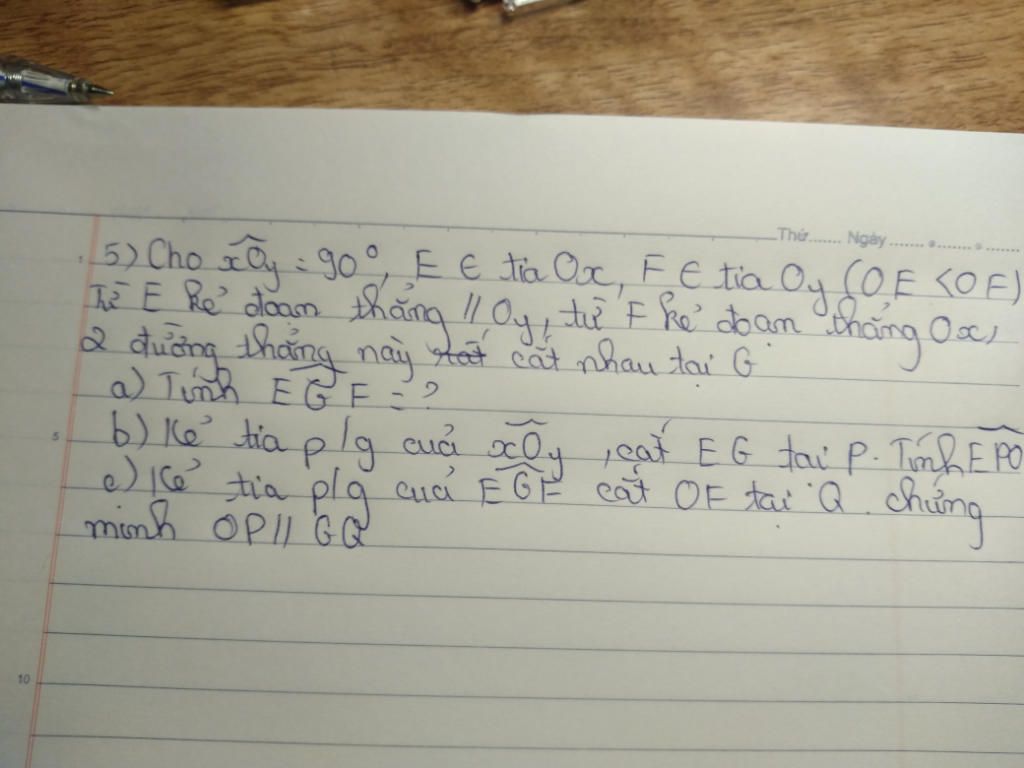 Thứ....... Ngày ....... . ....... . .......
5) Cho xOy = 90°, E ∈ tia Ox, F ∈ tia Oy (OE < OF)
Từ E kẻ đoạn thẳng // Oy, từ F kẻ đoạn thẳng Ox,
2 đường thẳng này cắt nhau tại G
a) Tính EGF = ?
5 b) Kẻ tia p/g cuả xOy, cắt EG tại P. Tính EPO
c) Kẻ tia p/g cuả EGF cắt OF tại Q. chứng
minh OP // GQ
10